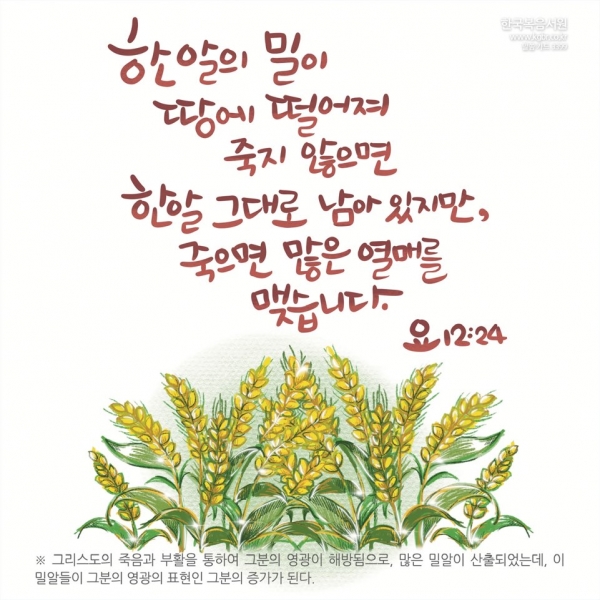 한국복음서원
www.kgbr.co.kr
한알의 밀이
땅에 떨어져
죽지 않으면
한알 그대로 남아 있지만,
죽으면 많은 열매를
맺습니다.
요 12:24
※ 그리스도의 죽음과 부활을 통하여 그분의 영광이 해방됨으로, 많은 밀알이 산출되었는데, 이
밀알들이 그분의 영광의 표현인 그분의 증가가 된다.